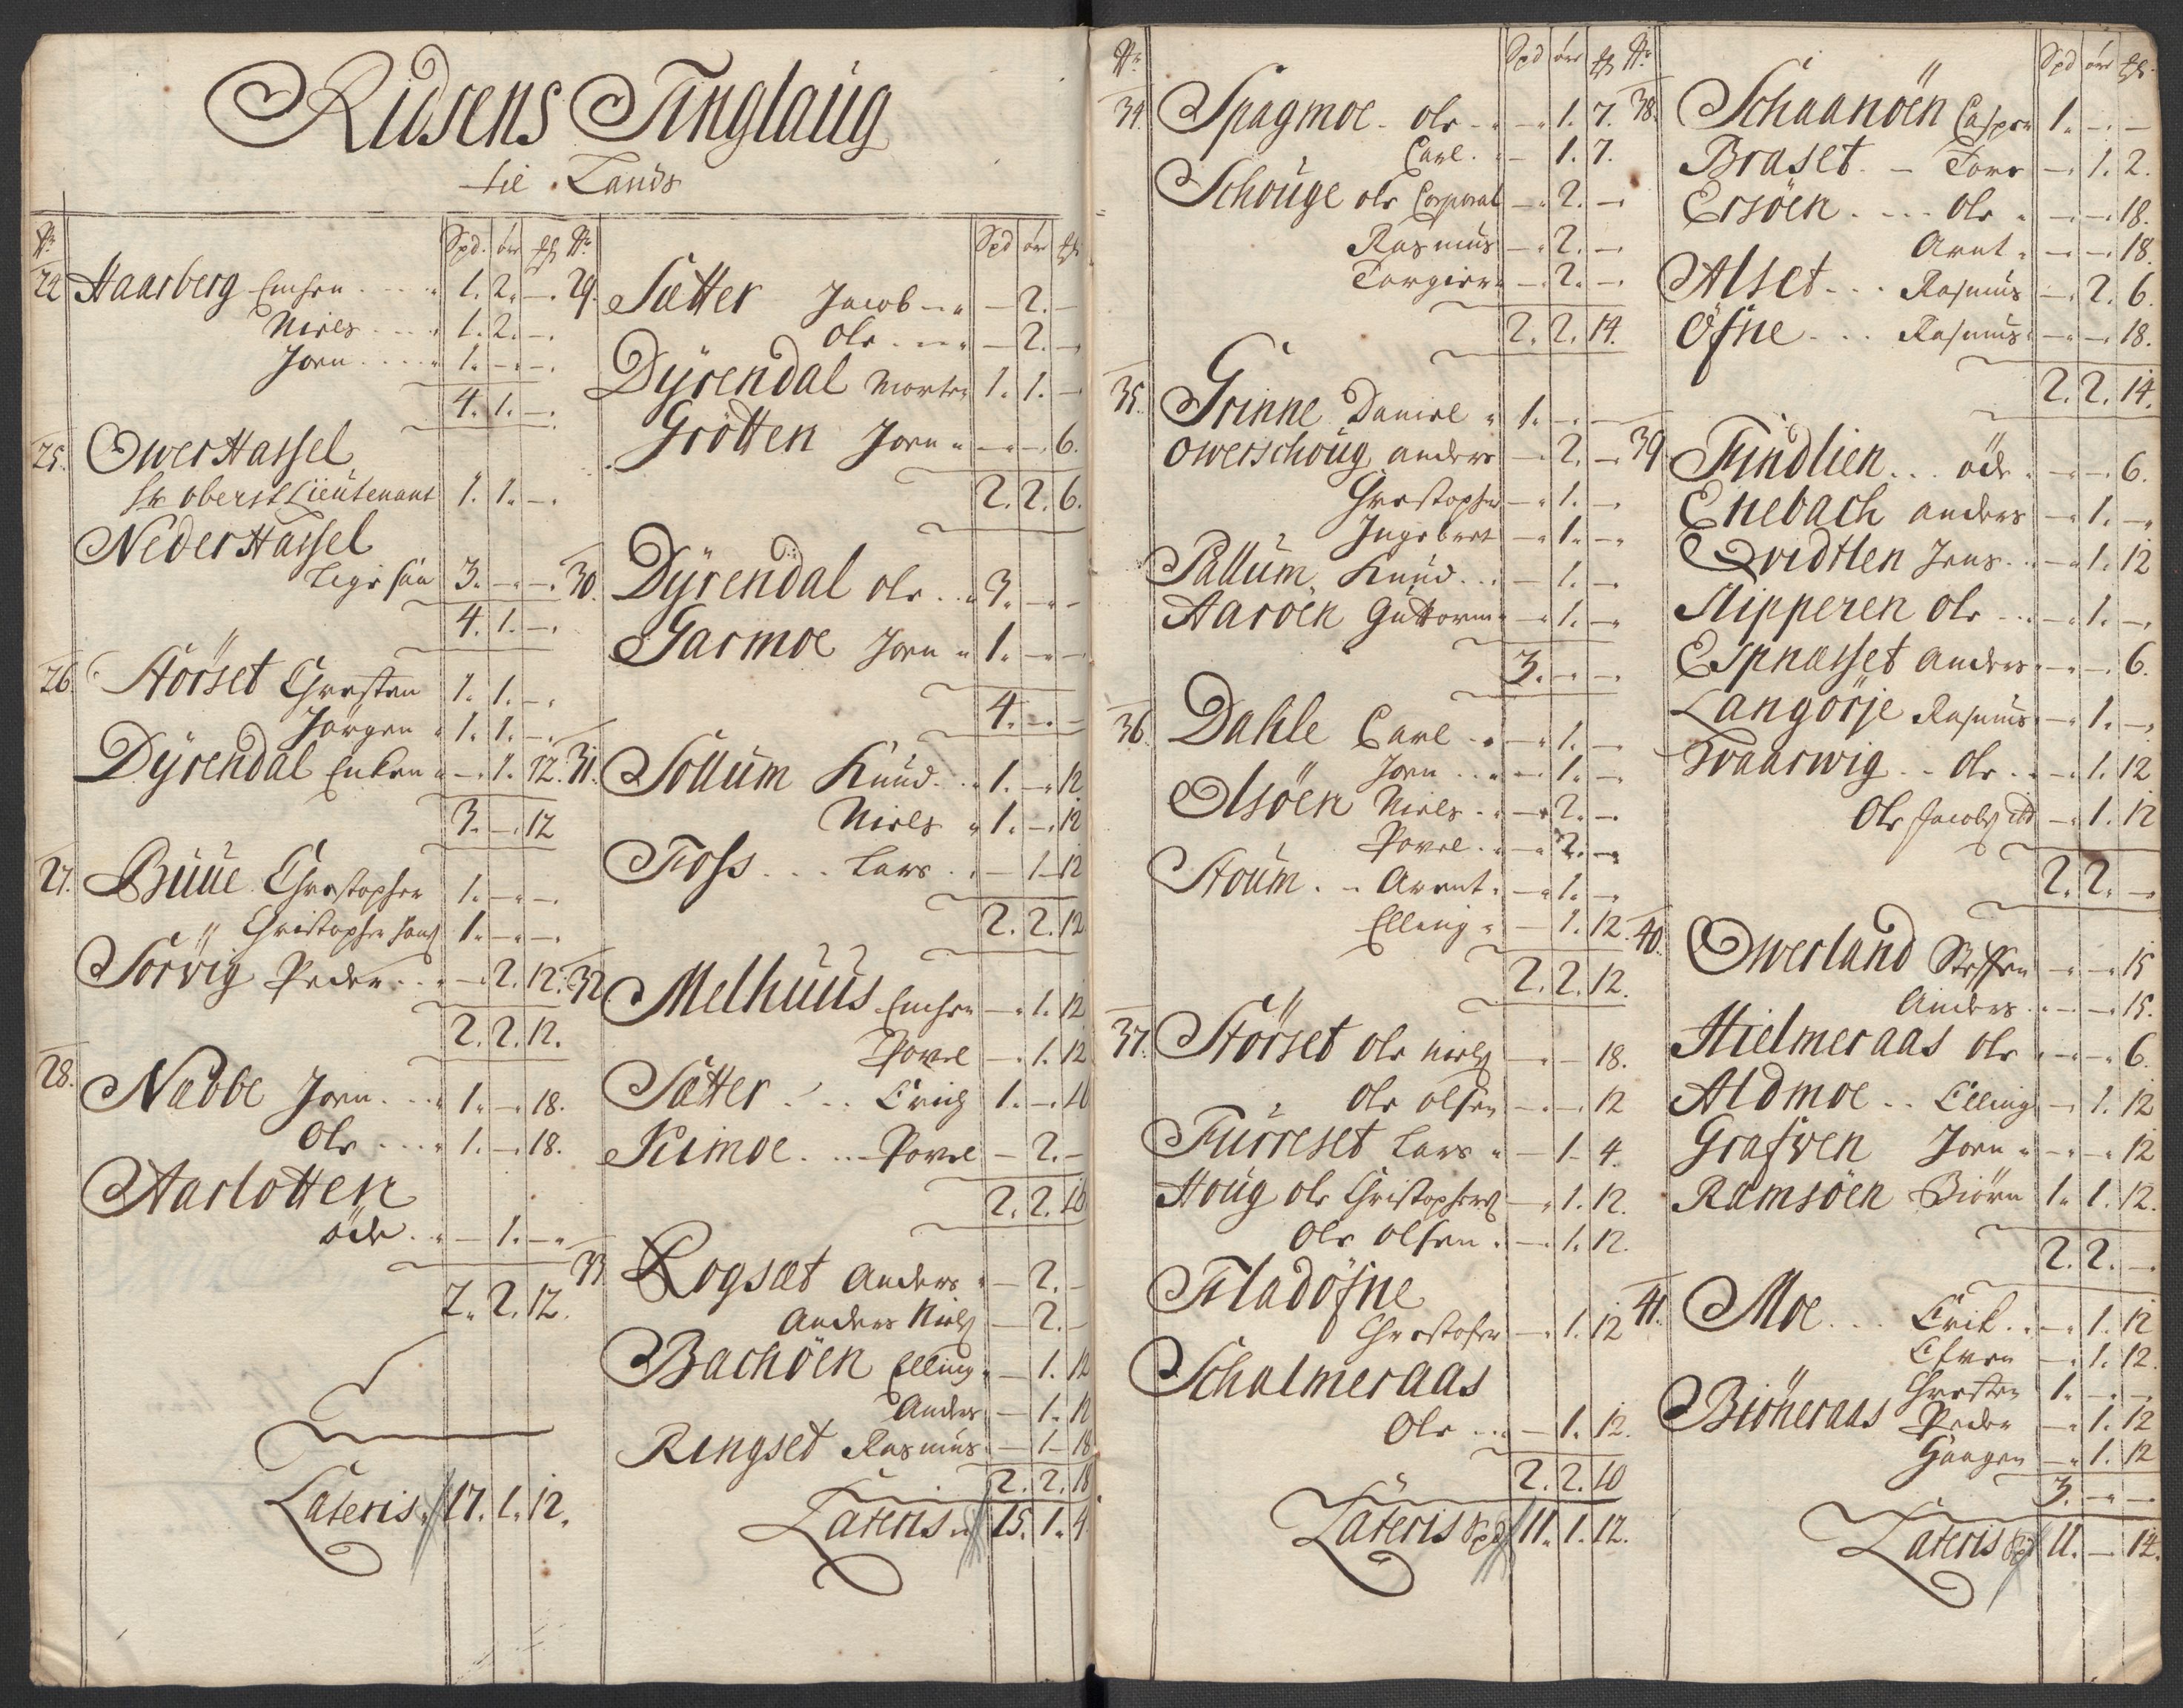 Ridsens Tinglaug
til Lands
Nr Spd. ōre ℔
24 Haarberg Einer 1. 2. —
Niels 1. 2. —
Joen 1. — —
4. 1. —
25. OwerHassel
Hr Oberst Lieutenant 1. 1. —
NederHassel
3. — —
4. 1. —
26. Störset Chresten 1. 1. —
Jörgen 1. 1. —
Dÿrendal Encken — 1. 12.
3. — 12
27. Buue Christopher 1. — —
Christopher 1. — —
Sorvig Peder — 2. 12.
2. 2. 12.
28. Nabbe Joen 1. — 18.
Ole 1. — 18.
Aarlotten
öde — 1. —
2. 2. 12.
Lateris 17. 1. 12.
Nr Spd ōre ℔
29. Sætter Jacob — 2. —
Ole — 2. —
Dÿrendal Morten 1. 1. —
Grötten Joen — — 6.
2. 2. 6.
30. Dÿrendal Ole 3. — —
Garmoe Joen 1. — —
4. — —
31. Sollum Knud 1. — 12
Niels 1. — 12
Foss Lars — 1 12
2. 2. 12
32 Melhuus — 1. 12
Povel — 1. 12
Sætter Erich 1. — 10
Kimoe Povel — 2. —
2. 2. 10
33 Rogsæt Anders — 2. —
Anders Niels — 2. —
Bachöen Elling — 1. 12
Anders — 1. 12
Ringset Rasmus — 1 18
2. 2. 18
Lateris 15. 1. 4.
Nr Spd ōre ℔
34. Spagmoe Ole — 1. 7.
Carl — 1. 7.
Schouge Ole Corporal — 2. —
Rasmus — 2. —
Torgier — 2. —
2. 2. 14.
35. Grinne Daniel 1. — —
Owerschoug Anders — 2. —
Christopher — 1. —
Ingebret — 1. —
Pallum Knud — 1. —
Aaroen Guttorm — 1. —
3. — —
36. Dahle Carl — 1. —
Joen — 1. —
Olsöen Niels — 2. —
Povel — 2. —
Stoum Arent — 1. —
Elling — 1. 12.
2. 2. 12.
37. Störset Ole Niels — — 18.
Ole Olsen — — 12
Furreset Lars — 1 4.
Houg Ole Christophers — 1. 12.
Ole Olsen — 1. 12.
Fladöfne
Christofer — 1. 12
Schalmeraas
Ole — 1. 12.
2. 2. 10
Lateris Spd 11. 1. 12.
Nr Spd ōre ℔
38. Schaanöen Casper 1. — —
Braset Tore — 1. 2.
Ersöen Ole — — 18.
Arnt — — 18.
Alset Rasmus — 2. 6.
Öfne Rasmus — — 18.
2. 2. 14.
39 Findlien öde — — 6.
Enebach Anders — 1. —
Qvidtlen Jens — 1. 12
Slipperen Ole — 1. —
Espnæsset Anders — — 6.
Langörje Rasmus — 1. —
Traarwig Ole — 1. 12
Ole Jacobs — 1. 12
2. 2. —
40. Owerland Steffen — — 15
Anders — — 15.
Hielmeraas Ole — — 6.
Aldmoe Elling — 1. 12
Grafven Joen — — 12
Ramsöen Biörn 1. 1. 12.
2. 2. —
41. Moe Erik — 1. 12
— 1. 12.
Chresten 1. — —
Biöneraas Peder — 1. 12
Haagen — 1. 12
3. — —
Lateris Spd 11. — 14.